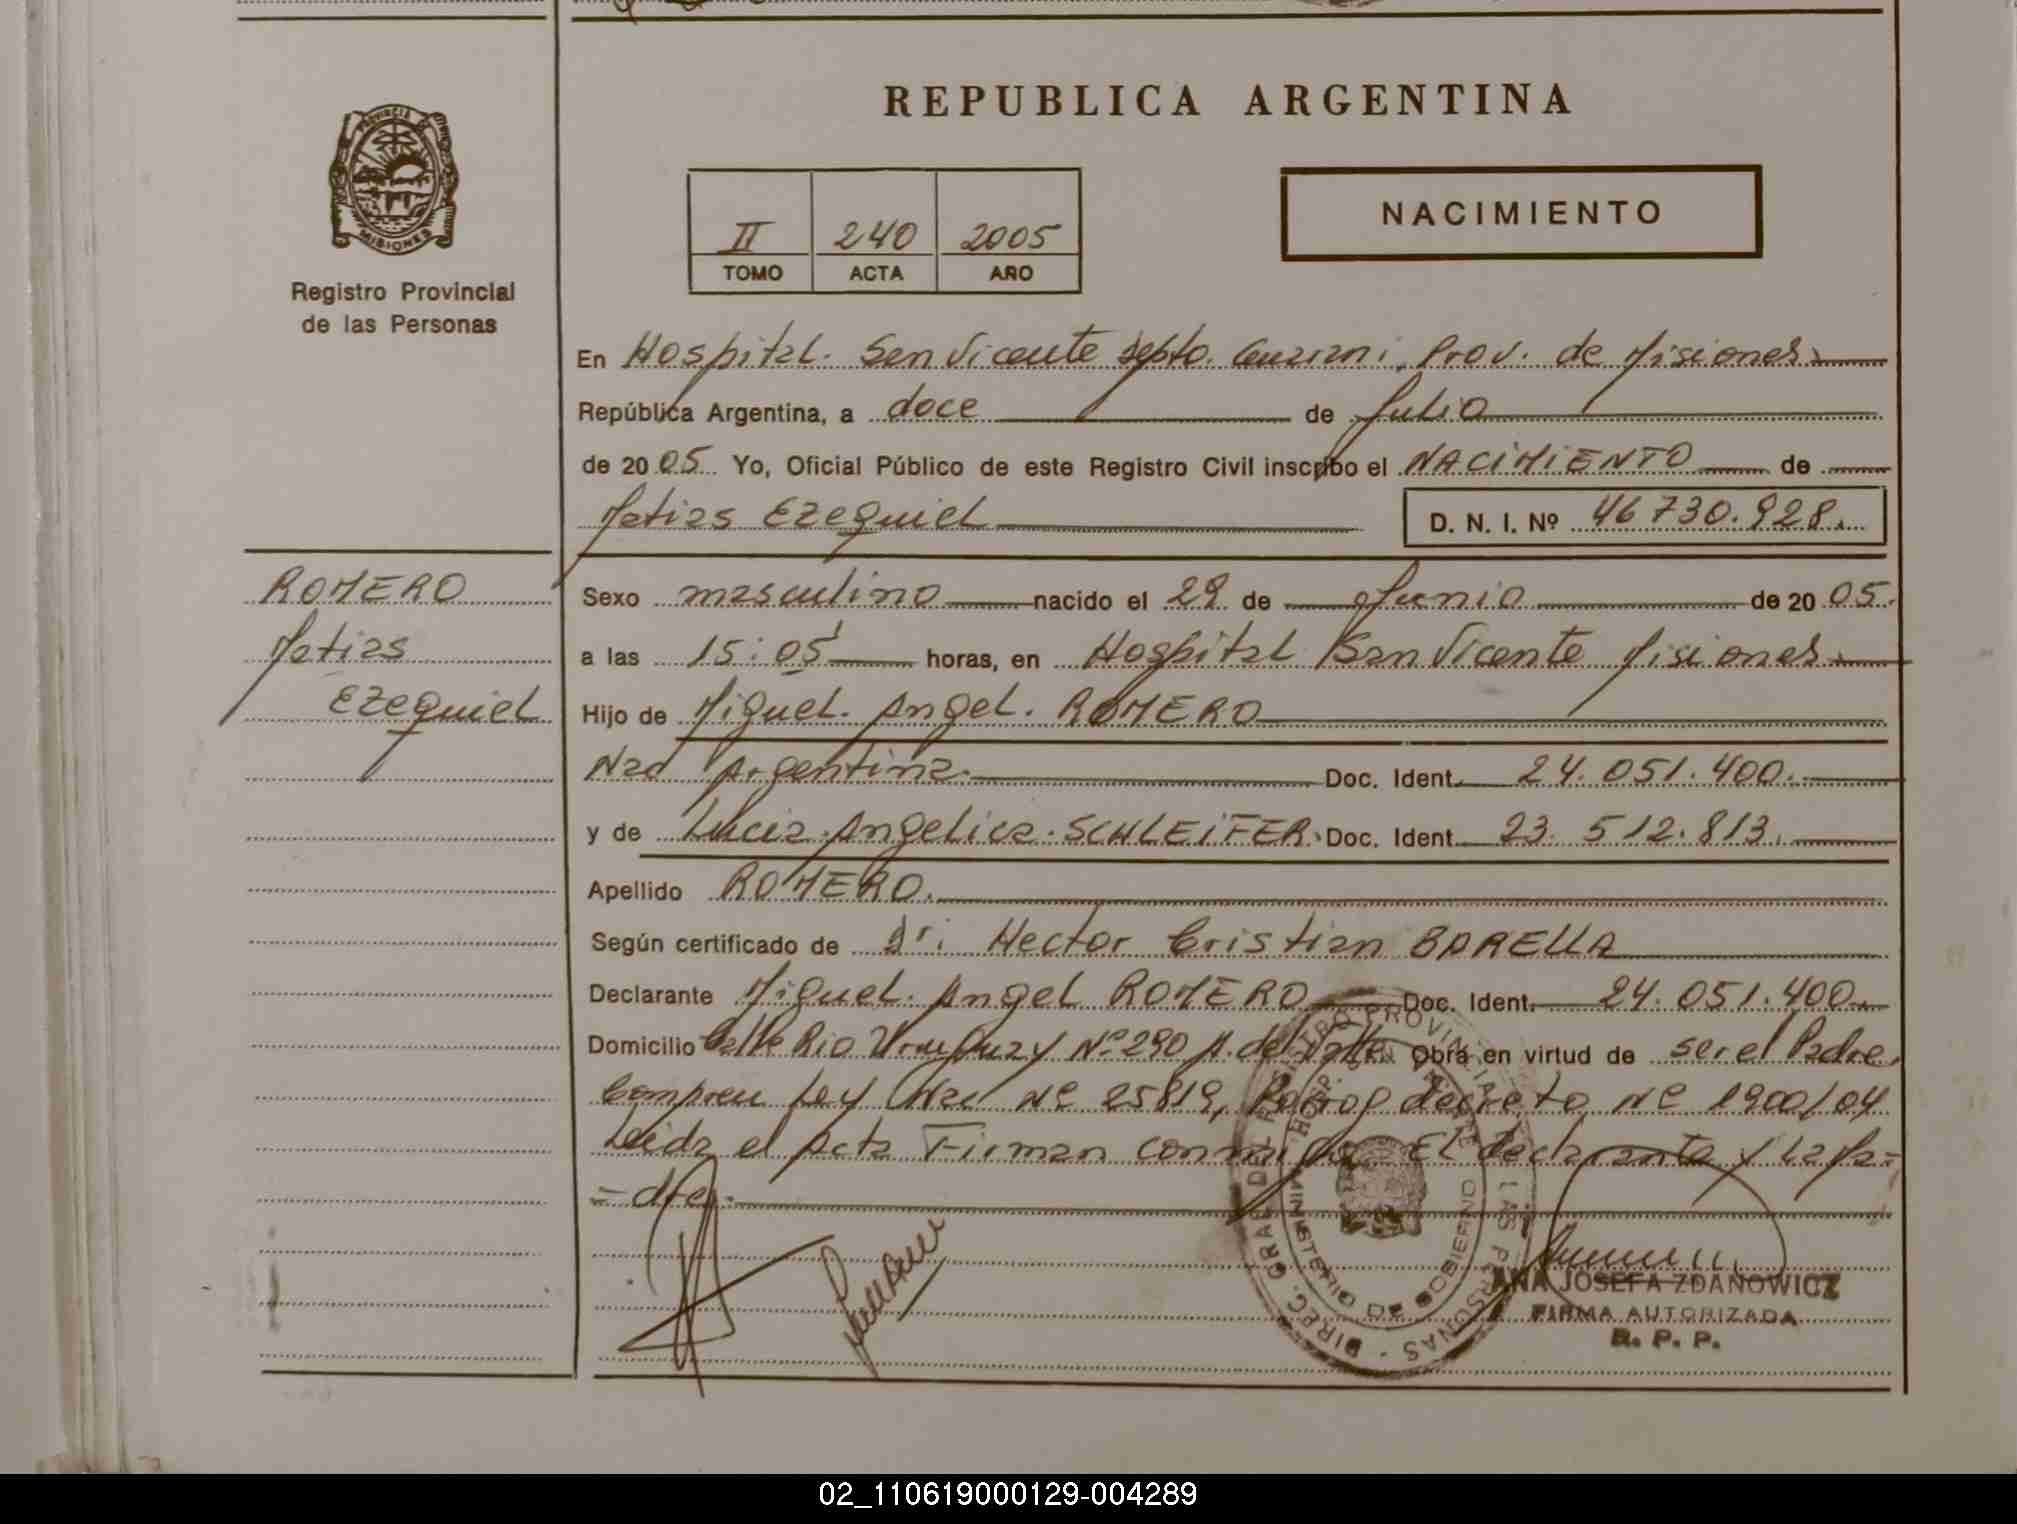 REPUBLICA ARGENTINA
PROVINCIA DE
MISIONES
Registro Provincial
de las Personas
II 240 2005
TOMO ACTA AÑO
NACIMIENTO
En Hospital. San Vicente Depto. Guarani, Prov. de Misiones
República Argentina, a doce de Julio
de 2005 Yo, Oficial Público de este Registro Civil inscribo el NACIMIENTO de
Matias Ezequiel D. N. I. Nº 46 730.928.
ROMERO
Matias
Ezequiel
Sexo masculino nacido el 29 de Junio de 2005.
a las 15:05 horas, en Hospital San Vicente Misiones
Hijo de Miguel. Angel. ROMERO
Nac Argentina. Doc. Ident. 24.051.400.
y de Lucia Angelica. SCHLEIFER. Doc. Ident. 23. 512.813.
Apellido ROMERO.
Según certificado de Dr. Hector Cristian BARELLA
Declarante Miguel. Angel ROMERO Doc. Ident. 24.051.400.
Domicilio Calle Rio Uruguay Nº 290 A. del Valle Obra en virtud de ser el Padre.
Ley Nac Nº 25819, decreto Nº 1900/04
Leida el Acta Firman conmigo El declarante y La Ma=
=dre.
DIREC. GRAL. DEL REGISTRO PROVINCIAL DE LAS PERSONAS
MINISTERIO DE GOBIERNO
ANA JOSEFA ZDANOWICZ
FIRMA AUTORIZADA
R. P. P.
02_110619000129-004289